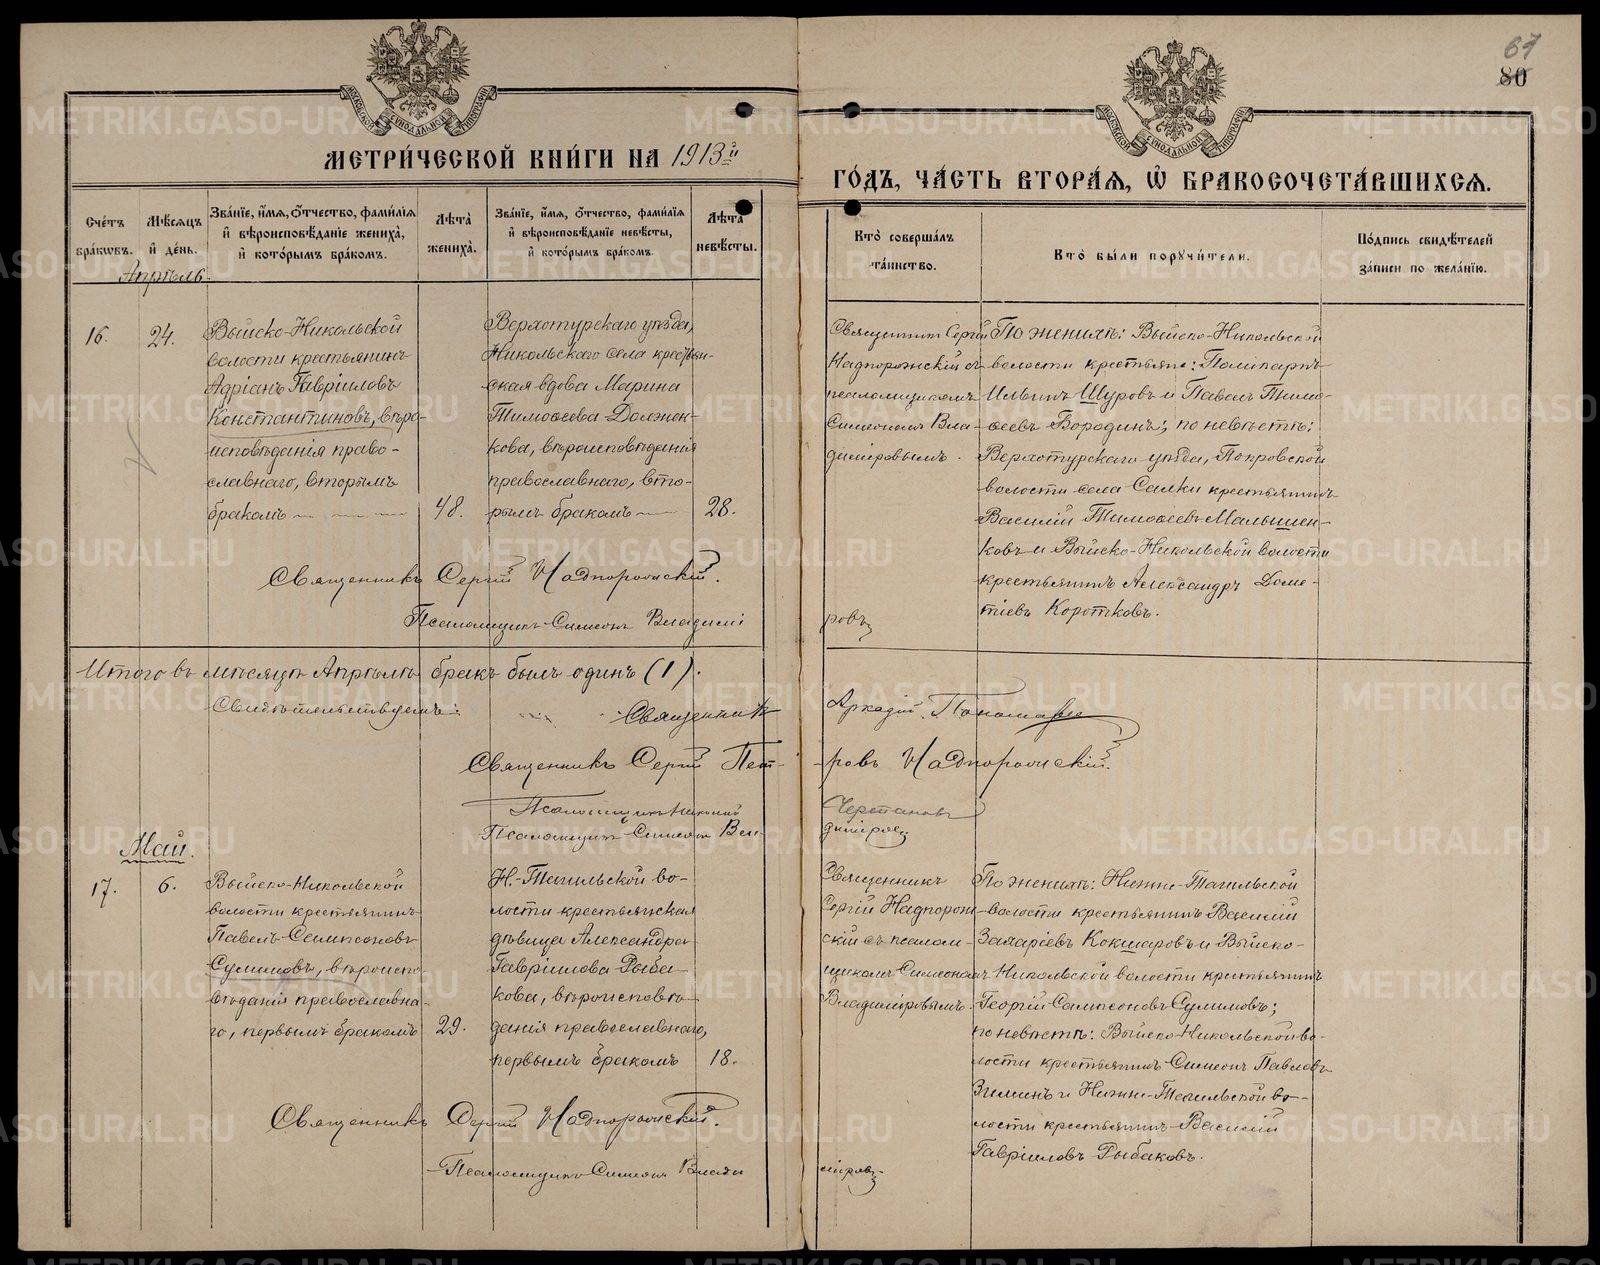 67
80
МОСКОВСКОЙ СѴНОДАЛЬНОЙ ТИПОГРАФІИ
МОСКОВСКОЙ СѴНОДАЛЬНОЙ ТИПОГРАФІИ
МЕТРИ́ЧЕСКОЙ КНИ́ГИ НА 1913й
ГО́ДЪ, ЧА́СТЬ ВТОРА́Я, Ѡ БРАКОСОЧЕТА́ВШИХСЯ.
Сче́тъ бра́кѡвъ.
Мѣ́сяцъ и́ де́нь.
Зва́нїе, и́мя, ѻ́тчество, фами́лїя и́ вѣроисповѣ́данїе жениха̀, и́ кото́рымъ бра́комъ.
Лѣ́та̀ жениха̀.
Зва́нїе, и́мя, ѻ́тчество, фами́лїя и́ вѣроисповѣ́данїе невѣ́сты, и́ кото́рымъ бра́комъ.
Лѣ́та̀ невѣ́сты.
Кто̀ соверша́лъ та́инство.
Кто̀ бы́ли порꙋчи́тели.
По́дпись свидѣ́телей за́писи по жела́нїю.
Апрѣль.
16.
24.
Выйско-Никольской
волости крестьянинъ
Адріанъ Гавріиловъ
Константиновъ, вѣро-
исповѣданія право-
славнаго, вторымъ
бракомъ
48.
Верхотурскаго уѣзда,
Никольскаго села крестьян-
ская вдова Марина
Тимоѳеева Должен-
кова, вѣроисповѣданія
православнаго, вто-
рымъ бракомъ
28.
Священникъ Сергій
Надпорожскій съ
псаломщикомъ
Симеономъ Вла-
диміровымъ.
По женихѣ: Выйско-Никольской
волости крестьяне: Поликарпъ
Ильинъ Шуровъ и Павелъ Тимо-
ѳеевъ Бородинъ; по невѣстѣ:
Верхотурскаго уѣзда, Покровской
волости села Салки крестьянинъ
Василій Тимоѳеевъ Малышен-
ковъ и Выйско-Никольской волости
крестьянинъ Александръ Доме-
тіевъ Коротковъ.
Священникъ Сергій Надпорожскій.
Псаломщикъ Симеонъ Владимі
ровъ
Итого въ мѣсяцѣ Апрѣлѣ бракъ былъ одинъ (1).
Свидѣтельствуемъ: Священникъ Аркадій Пономаревъ
Священникъ Сергій Пет-
-ровъ Надпорожскій.
Псаломщикъ Николай Черепановъ
Псаломщикъ Симеонъ Вла-
диміровъ
Май.
17.
6.
Выйско-Никольской
волости крестьянинъ
Павелъ Сампсоновъ
Сулимовъ, вѣроиспо-
вѣданія православна-
го, первымъ бракомъ
29.
Н.-Тагильской во-
лости крестьянская
дѣвица Александра
Гавріилова Рыба-
кова, вѣроисповѣ-
данія православнаго,
первымъ бракомъ
18.
Священникъ
Сергій Надпорож-
скій съ псалом-
щикомъ Симеономъ
Владиміровымъ.
По женихѣ: Нижне-Тагильской
волости крестьянинъ Василій
Захаріевъ Кокшаровъ и Выйско-
Никольской волости крестьянинъ
Георгій Сампсоновъ Сулимовъ;
по невѣстѣ: Выйско-Никольской во-
лости крестьянинъ Симеонъ Павловъ
Зиминъ и Нижне-Тагильской во-
лости крестьянинъ Василій
Гавріиловъ Рыбаковъ.
Священникъ Сергій Надпорожскій.
Псаломщикъ Симеонъ Влади
міровъ
METRIKI.GASO-URAL.RU